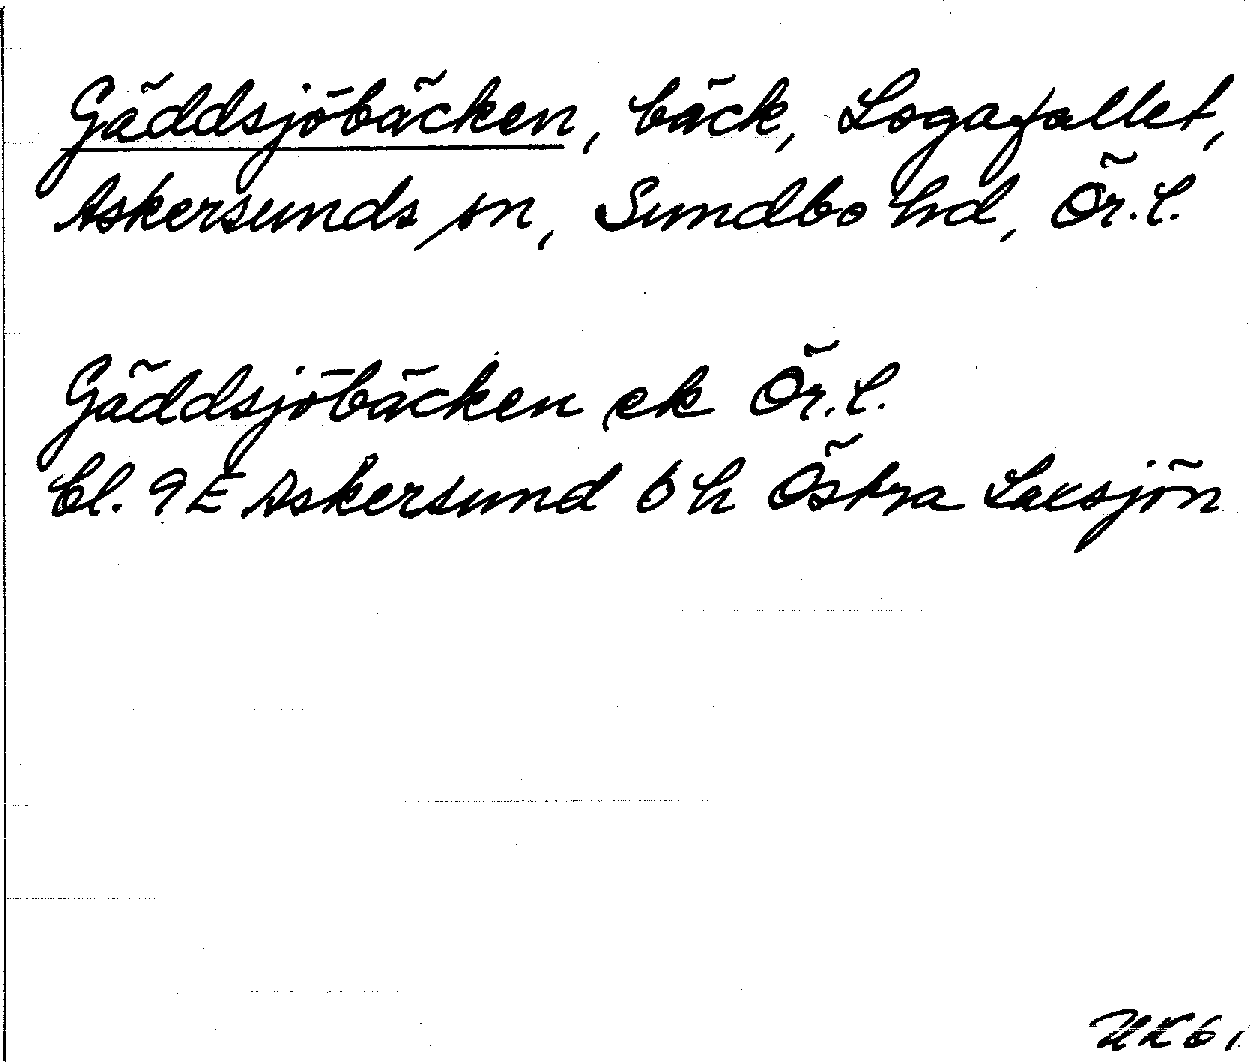 Gäddsjöbäcken, bäck, Logafallet,
Askersunds sn, Sundbo hd, Ör.l.
Gäddsjöbäcken ek Ör.l.
bl. 9E Askersund 6 h Östra Laxsjön